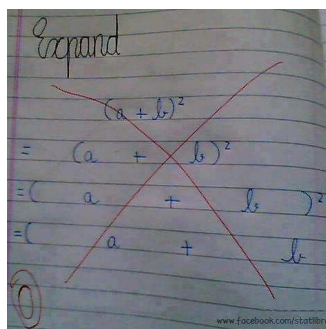 Expand
(a + b)²
= (a + b)²
= ( a + b )²
= ( a + b
0
www.facebook.com/statlibr